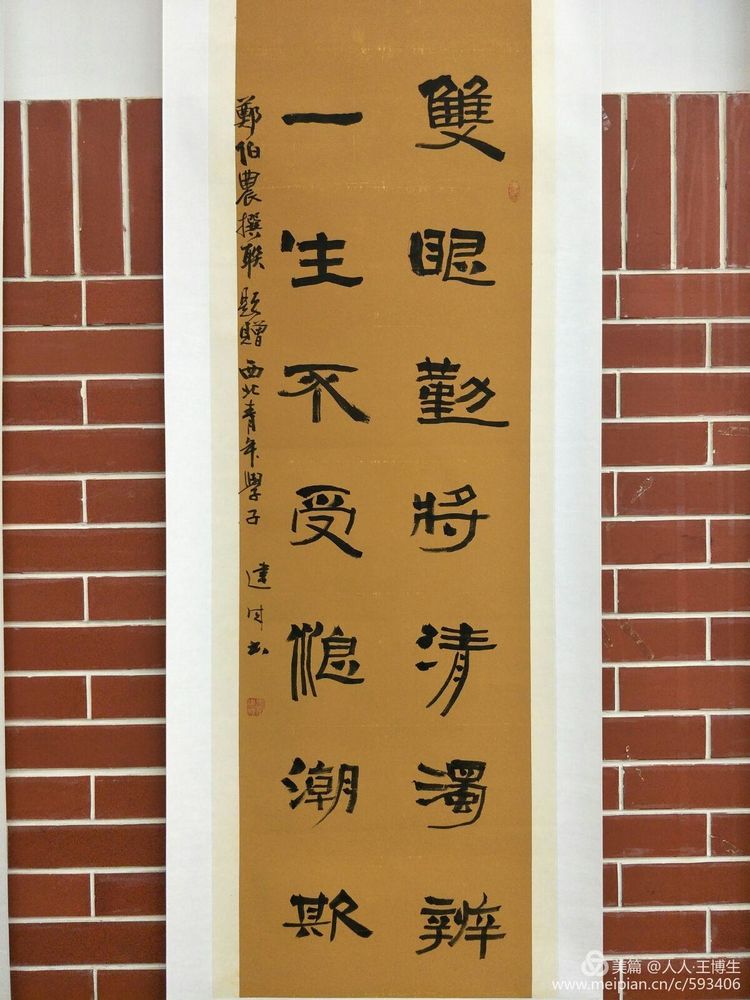 雙眼勤將清濁辨
一生不受浪潮欺
鄭伯農撰联 题赠西北青年學子 建
美篇 @人人·王博生
www.meipian.cn/c/593406